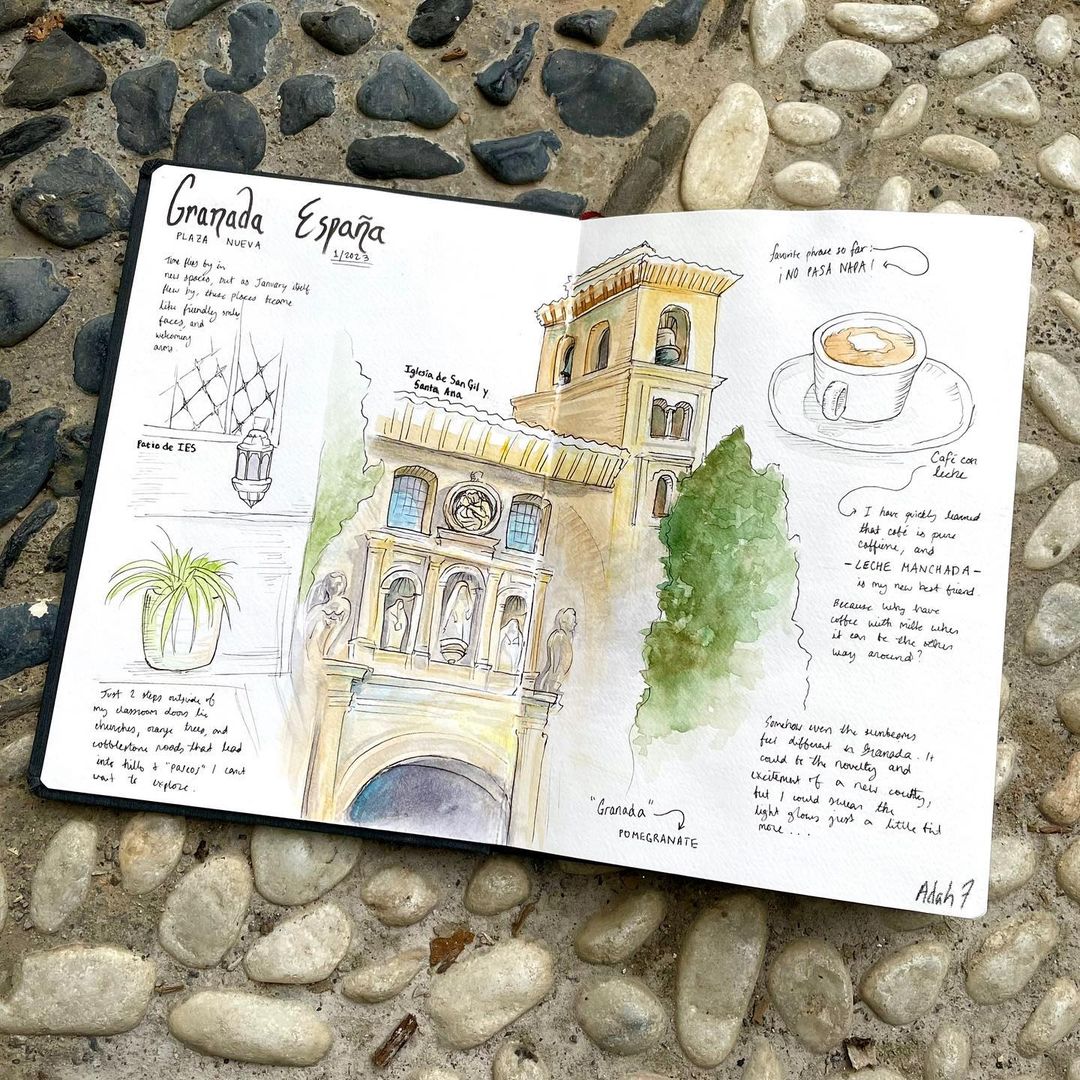 Granada España
PLAZA NUEVA
1/2023
Time flies by in
new spaces, but as January itself
flew by, these places became
like friendly
faces, and
welcoming
arms.
Patio de IES
Just 2 steps outside of
my classroom doors lie
churches, orange trees, and
cobblestone roads that lead
into hills & "paseos" I can't
wait to explore.
Iglesia de San Gil y
Santa Ana
favorite phrase so far:
¡NO PASA NAPA!
Café con
leche
I have quickly learned
that café is pure
caffiene, and
- LECHE MANCHADA -
is my new best friend.
Because why have
coffee with milk when
it can be the other
way around?
Somehow even the sunbeams
feel different in Granada. It
could be the novelty and
excitement of a new country,
but I could swear the
light glows just a little bit
more....
"Granada"
POMEGRANATE
Adah F